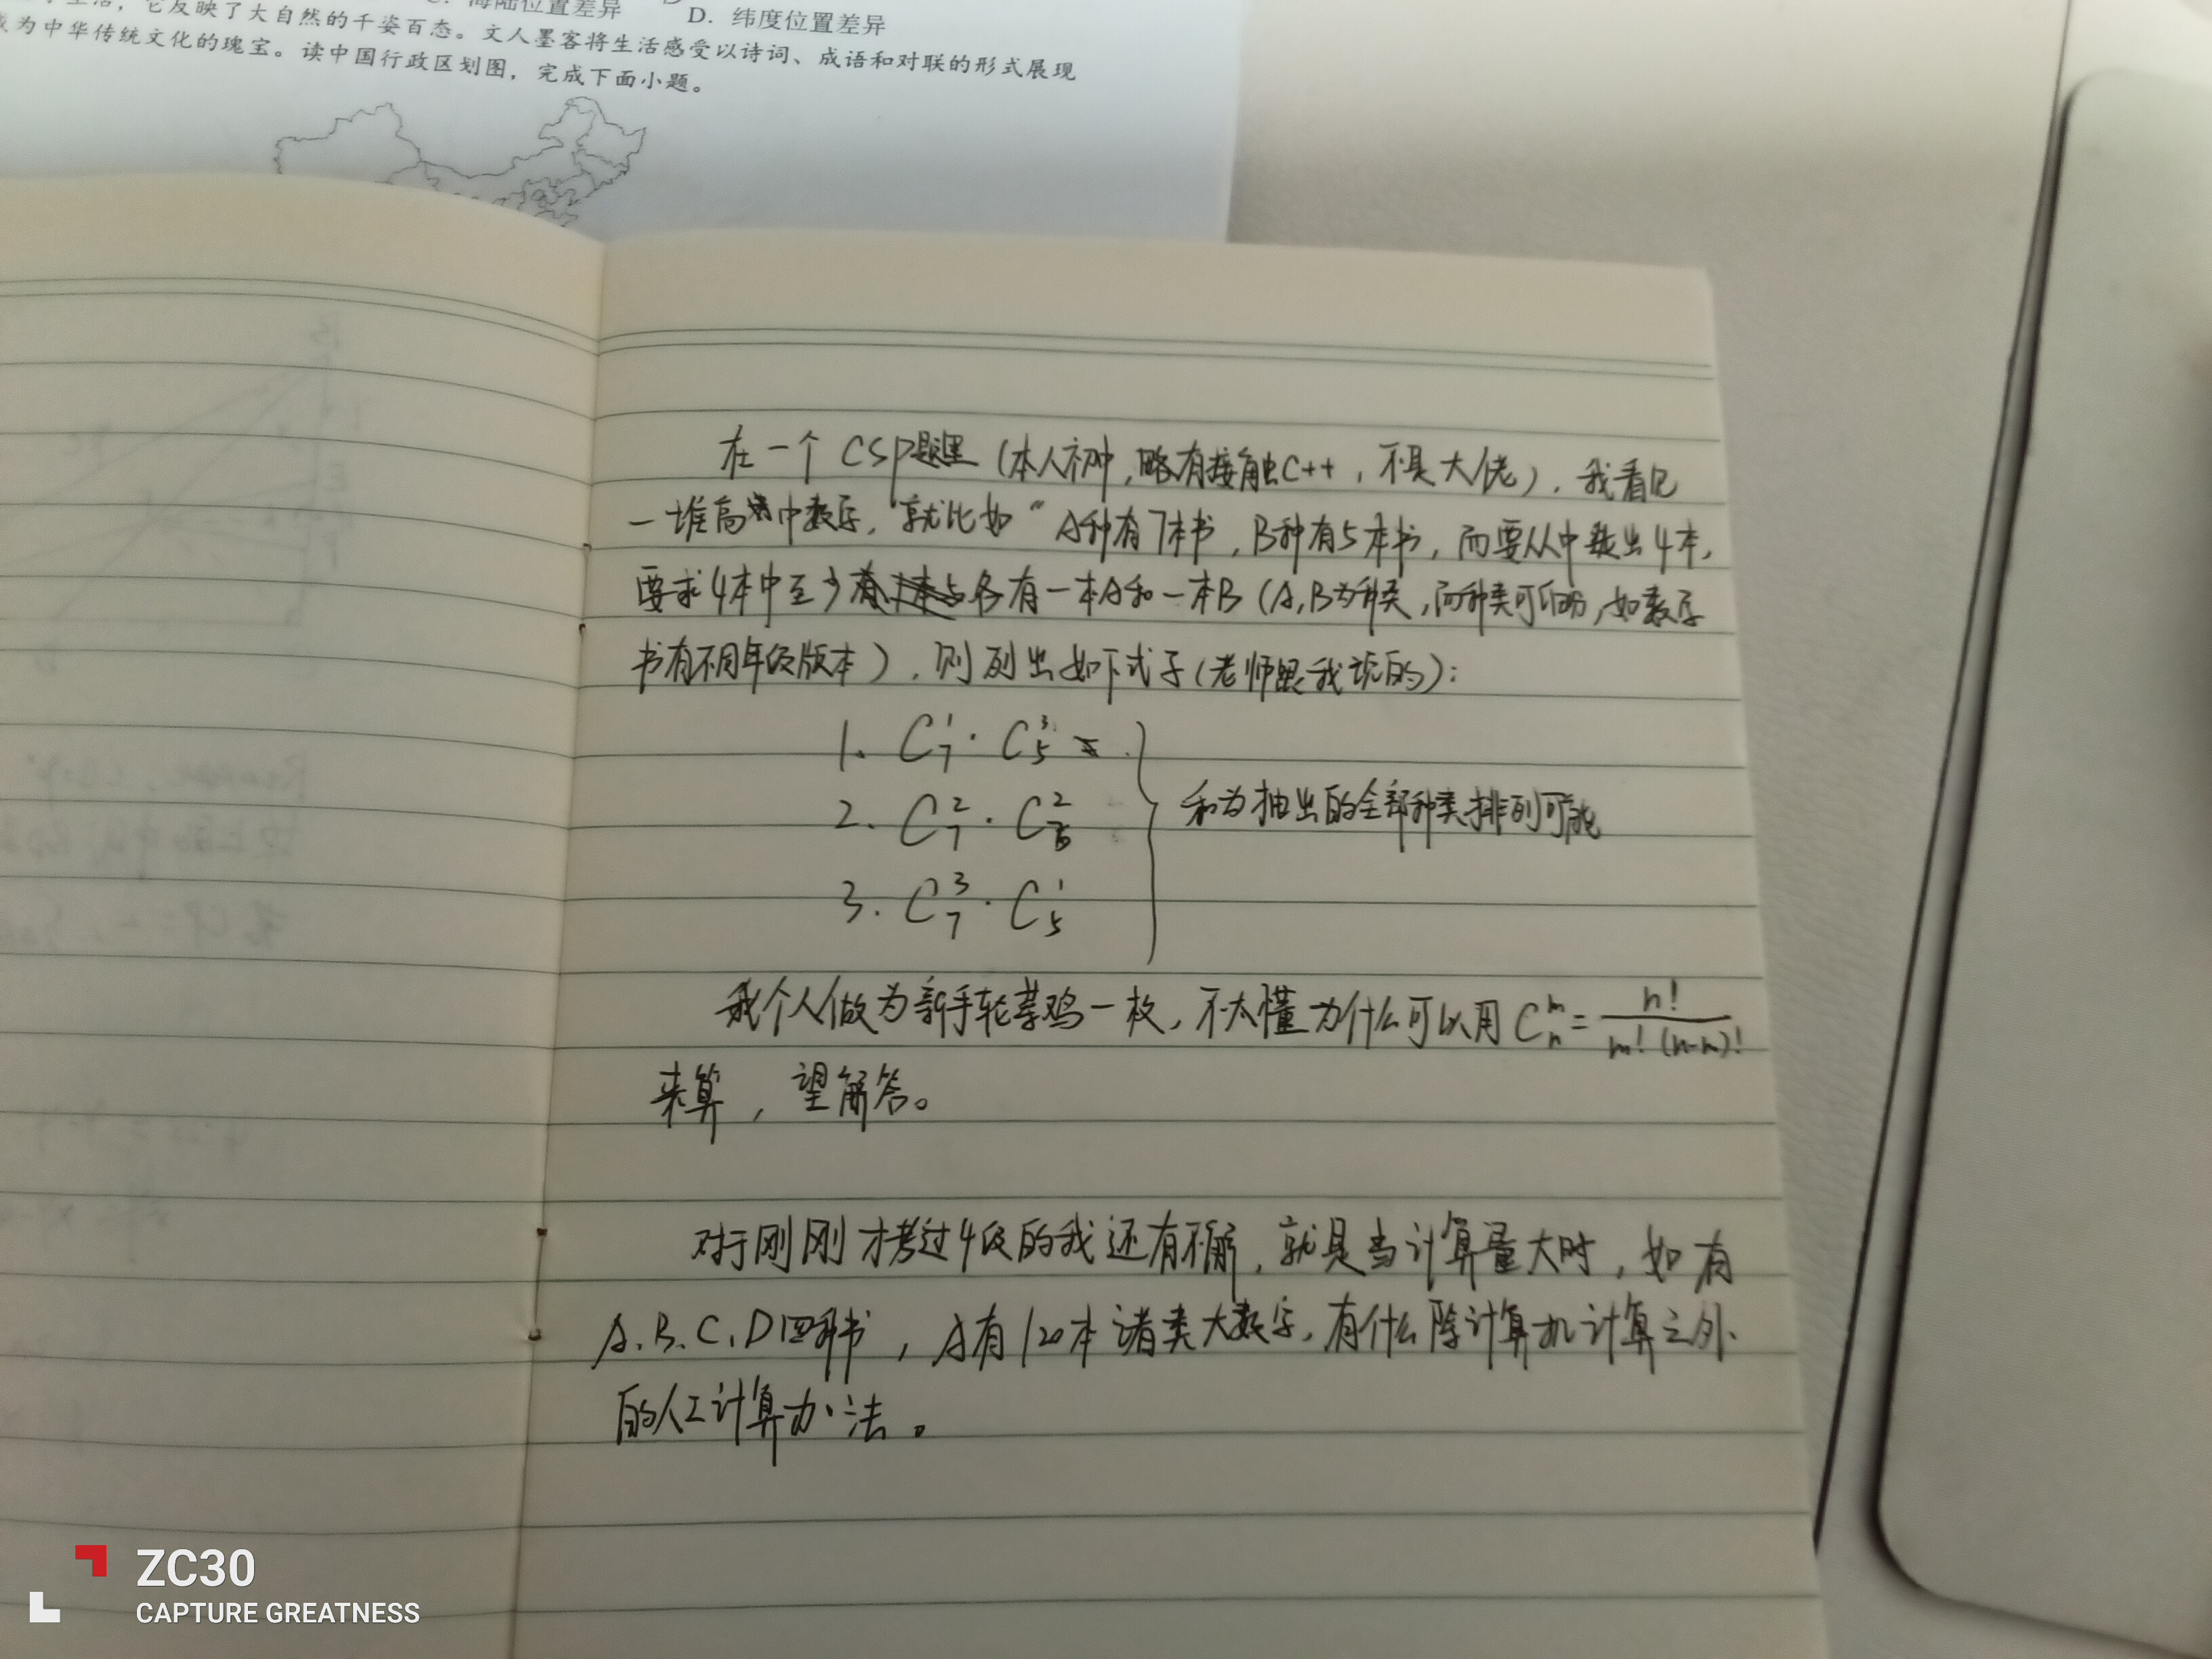 生活，它反映了大自然的千姿百态。文人墨客将生活感受以诗词、成语和对联的形式展现
C. 海陆位置差异
D. 纬度位置差异
为中华传统文化的瑰宝。读中国行政区划图，完成下面小题。
在一个CSP题里（本人初中，略有接触C++，不是大佬），我看见
一堆高中数学，就比如“A种有7本书，B种有5本书，而要从中拢出4本，
要求4本中至少各有一本A和一本B（A,B为种类，而种类可细分，如数学
书有不同年级版本），则列出如下式子（老师跟我说的）：
1. C₇¹·C₅³
2. C₇²·C₅²
3. C₇³·C₅¹
和为抽出的全部种类排列可能
我个人做为新手轮荐鸡一枚，不太懂为什么可以用 Cₙᵐ = n! / m!(n-m)!
来算，望解答。
对于刚刚才考过4级的我还有不解，就是当计算量大时，如有
A、B、C、D四种书，A有120本诸类大数字，有什么除计算机计算之外
的人工计算办法。
ZC30
CAPTURE GREATNESS